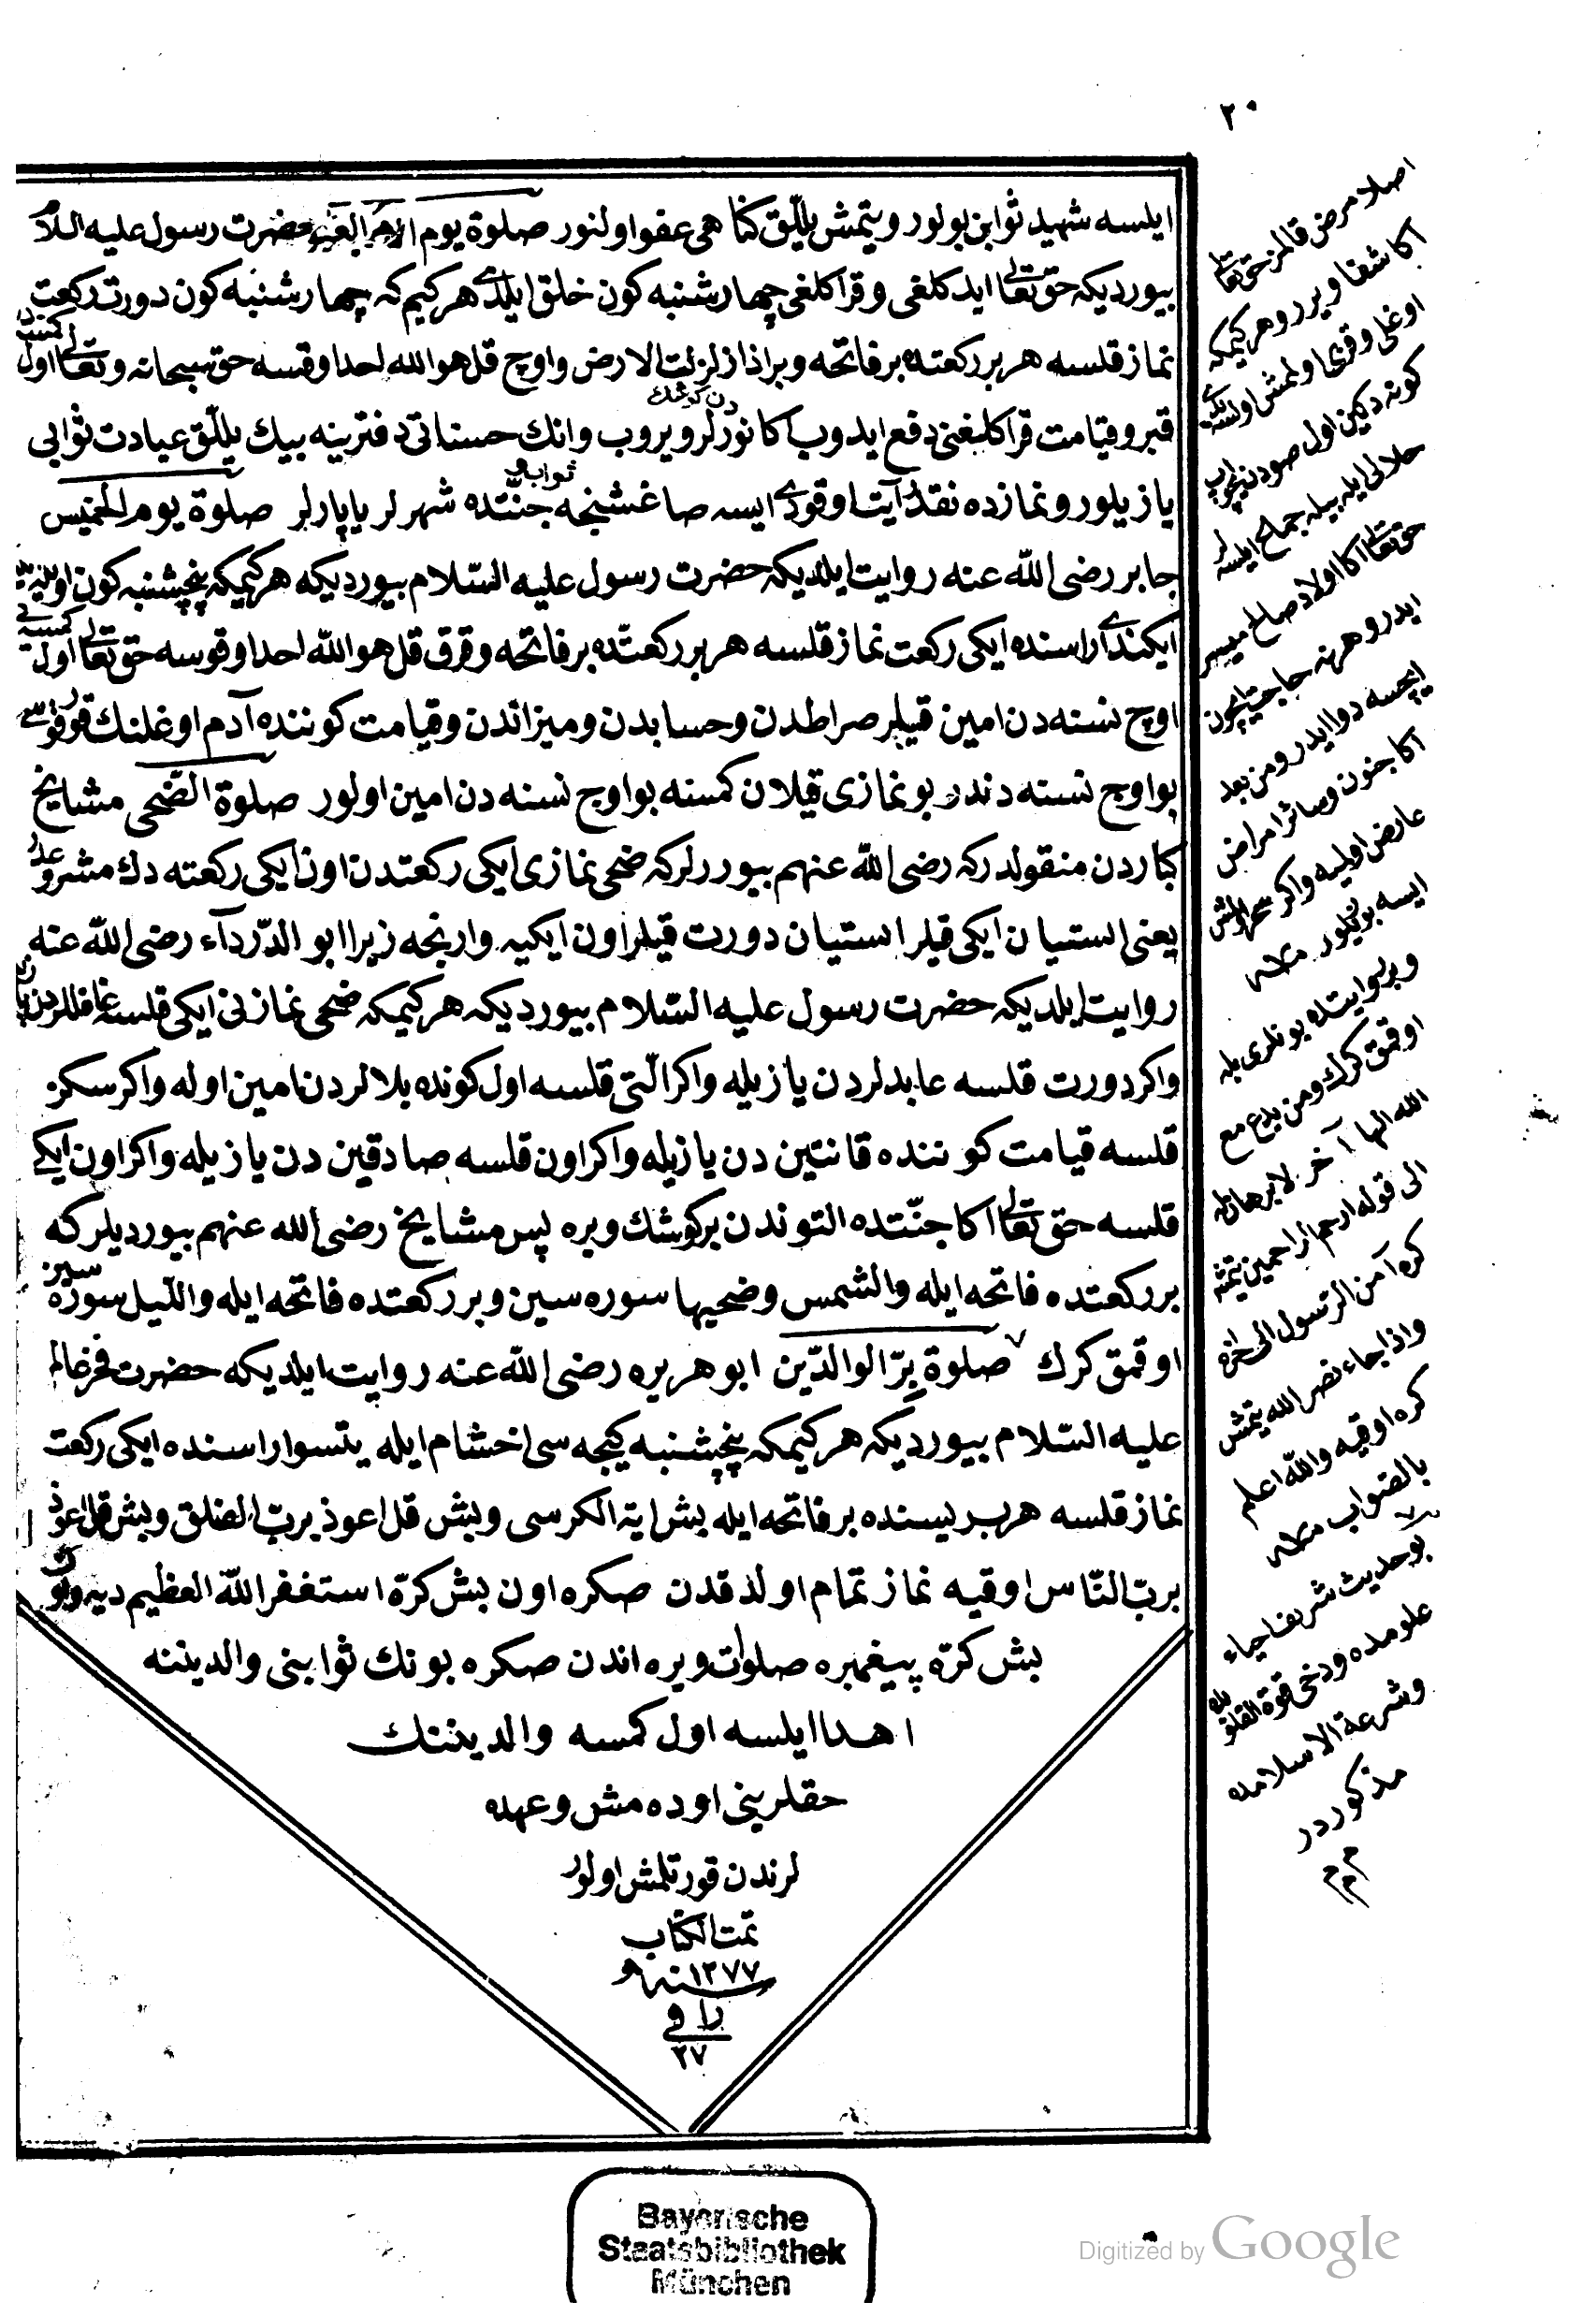 ٢٠
ايلسه شهيد ثوابن بولور ويتمش ييللق كناهى عفو اولنور صلوة يوم حضرت رسول عليه السلام
بيورديكه حق تعالى ايدكلغى وقراكلغى چهارشنبه كون خلق ايلدى هركيم كه چهارشنبه كون دورت ركعت
نماز قلسه هر بر ركعتده بر فاتحه وبر اذا زلزلت الارض واوچ قل هو الله احد اوقسه حق سبحانه وتعالى اول كمسنه
دن كوشك
قبر وقيامت قراكلیغنى دفع ايدوب اكا نورلر ويروب وانك حسناتى دفترينه بيك ييللق عبادت ثوابى
ثواب
يازيلور ونمازده نقدر آيت اوقودى ايسه صاغشنجه جنتده شهرلر ياپارلر صلوة يوم الخميس
جابر رضى الله عنه روايت ايلديكه حضرت رسول عليه السلام بيورديكه هركيمكه پنچشنبه كون اويله
ايكندى اراسنده ايكى ركعت نماز قلسه هر بر ركعتده بر فاتحه وقرق قل هو الله احد اوقوسه حق تعالى اول كمسه يى
اوچ نسنه دن امين قيلر صراطدن وحسابدن وميزاندن وقيامت كوننده آدم اوغلنك قورقوسى
بو اوچ نسنه دندر بو نمازى قيلان كمسنه بو اوچ نسنه دن امين اولور صلوة الضحى مشايخ
كباردن منقولدركه رضى الله عنهم بيوررلركه ضحى نمازى ايكى ركعتدن اون ايكى ركعته دك مشروعدر
يعنى استيان ايكى قيلر استيان دورت قيلر اون ايكيه وارنجه زيرا ابو الدرداء رضى الله عنه
روايت ايلديكه حضرت رسول عليه السلام بيورديكه هركيمكه ضحى نمازنى ايكى قلسه غافللردن
واكر دورت قلسه عابدلردن يازيله واكر التى قلسه اول كونده بلالردن امين اوله واكر سكز
قلسه قيامت كوننده قانتين دن يازيله واكر اون قلسه صادقين دن يازيله واكر اون ايكى
قلسه حق تعالى اكا جنتده التوندن بر كوشك ويره پس مشايخ رضى الله عنهم بيورديلركه
بر ركعتده فاتحه ايله والشمس وضحيها سوره سين وبر ركعتده فاتحه ايله والليل سوره سين
اوقمق كرك صلوة بر الوالدين ابو هريره رضى الله عنه روايت ايلديكه حضرت فخر عالم
عليه السلام بيورديكه هركيمكه پنچشنبه كيجه سى اخشام ايله يتسو اراسنده ايكى ركعت
نماز قلسه هر بريسنده بر فاتحه ايله بش اية الكرسى وبش قل اعوذ برب الفلق وبش قل اعوذ
برب الناس اوقيه نماز تمام اولدقدن صكره اون بش كره استغفر الله العظيم ديه واون
بش كره پيغمبره صلوات ويره اندن صكره بونك ثوابنى والديننه
اهدا ايلسه اول كمسه والديننك
حقلرينى اوده مش وعهده
لرندن قورتلمش اولور
تمت الكتاب
سنه ١٢٧٧
را
٢٧
اصلا مرض قالمز حق تعالى
اكا شفا ويرر وهركيمكه
اوغلى وقزى اولمش اولسه
كونه دكين اول صودن ايچوب
حلالى ايله بيله جماع ايلسه لر
حق تعالى اكا اولاد صالح ميسر
ايدر وهر نه حاجت ايچون
ايچسه دوا ايدر ومن بعد
اكا جنون وسائر امراض
عارض اولميه واكر سحر اولمش
ايسه بوزيلور
وبر روايتده بونلرى بله
اوقمق كرك ومن يدع مع
الله الها آخر لا برهان له
الى قوله ارحم الراحمين يتمش
كره آمن الرسول الى اخره
واذا جاء نصر الله يتمش
كره اوقيه والله اعلم
بالصواب
بو حديث شريف احياء
علومده ودخى قوة القلوبده
وشرعة الاسلامده
مذكوردر
Bayerische
Staatsbibliothek
München
Digitized by Google